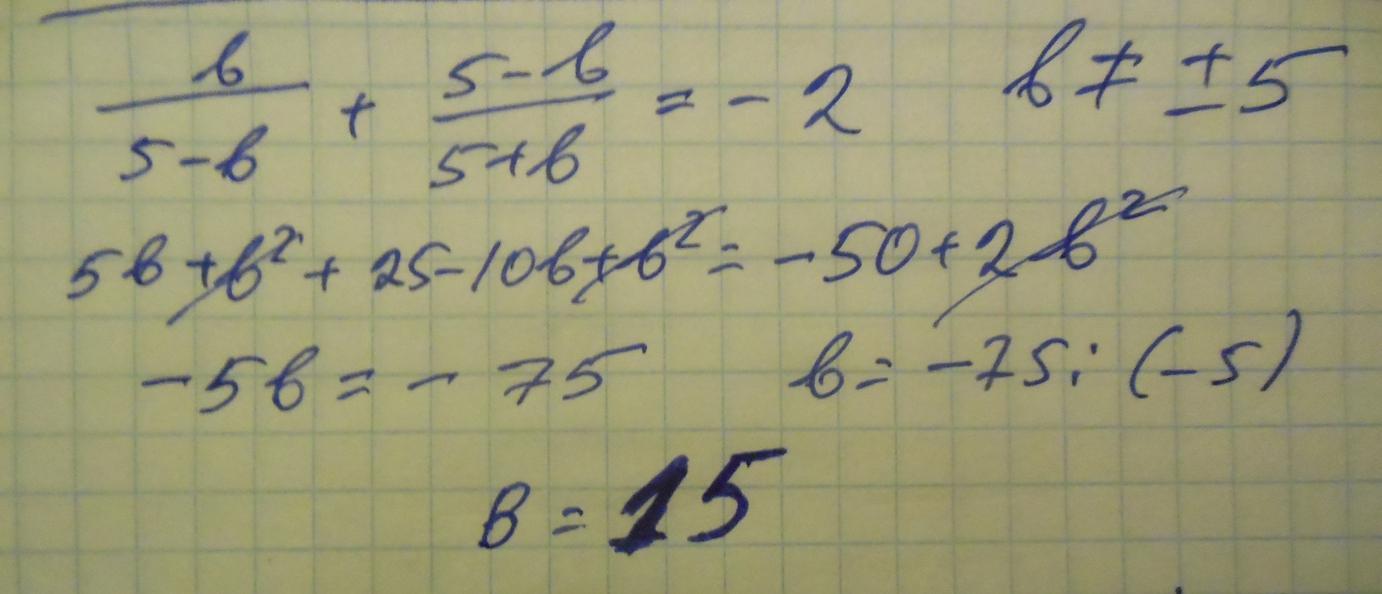 b/(5-b) + (5-b)/(5+b) = -2   b ≠ ±5
5b + b² + 25 - 10b + b² = -50 + 2b²
-5b = -75   b = -75 : (-5)
b = 15